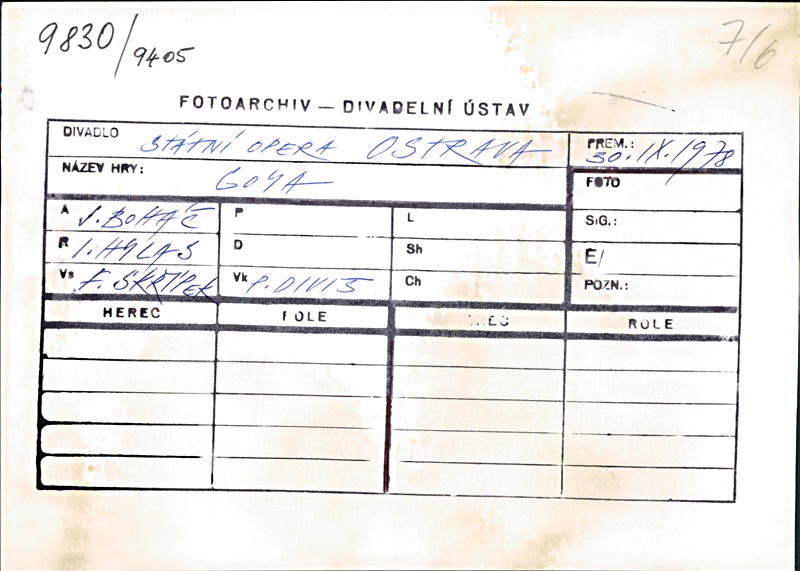 9830/9405
7/6
FOTOARCHIV — DIVADELNÍ ÚSTAV
DIVADLO STÁTNÍ OPERA OSTRAVA
PREM.: 30. IX. 1978
NÁZEV HRY: GOYA
FOTO
A J. BOHÁČ P L SIG.:
R I. HYLAS D Sh E/
Vs F. SKŘÍPEK Vk P. DIVIŠ Ch POZN.:
HEREC ROLE ROLE